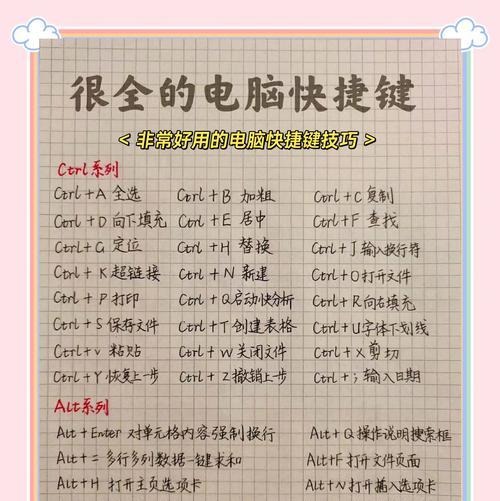 很全的电脑快捷键
< 非常好用的电脑快捷键技巧 >
Ctrl系列
Ctrl+A 全选 Ctrl+B 加粗 Ctrl+C 复制
Ctrl+D 向下填充 Ctrl+E 居中 Ctrl+F 查找
Ctrl+G 定位 Ctrl+H 替换 Ctrl+J 输入换行符
Ctrl+K 超链接 Ctrl+N 新建 Ctrl+O 打开文件
Ctrl+P 打印 Ctrl+Q 启动快分析 Ctrl+R 向右填充
Ctrl+S 保存文件 Ctrl+T 创建表格 Ctrl+U 字体下划线
Ctrl+v 粘贴 Ctrl+W 关闭文件 Ctrl+X 剪切
Ctrl+Y 恢复上一步 Ctrl+Z 撤销上一步 Ctrl+; 输入日期
Alt系列
Alt+Enter 对单元格内容强制换行 Alt+Q 操作说明搜索框
Alt+= 多行多列数据一键求和 Alt+F 打开文件页面
Alt+H 打开主页选项卡 Alt+N 打开插入选项卡